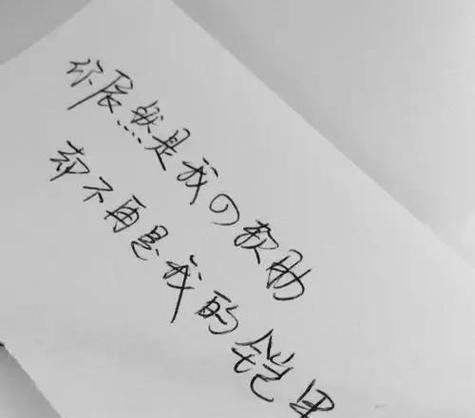 你然是我の软肋
却不再是我的铠甲